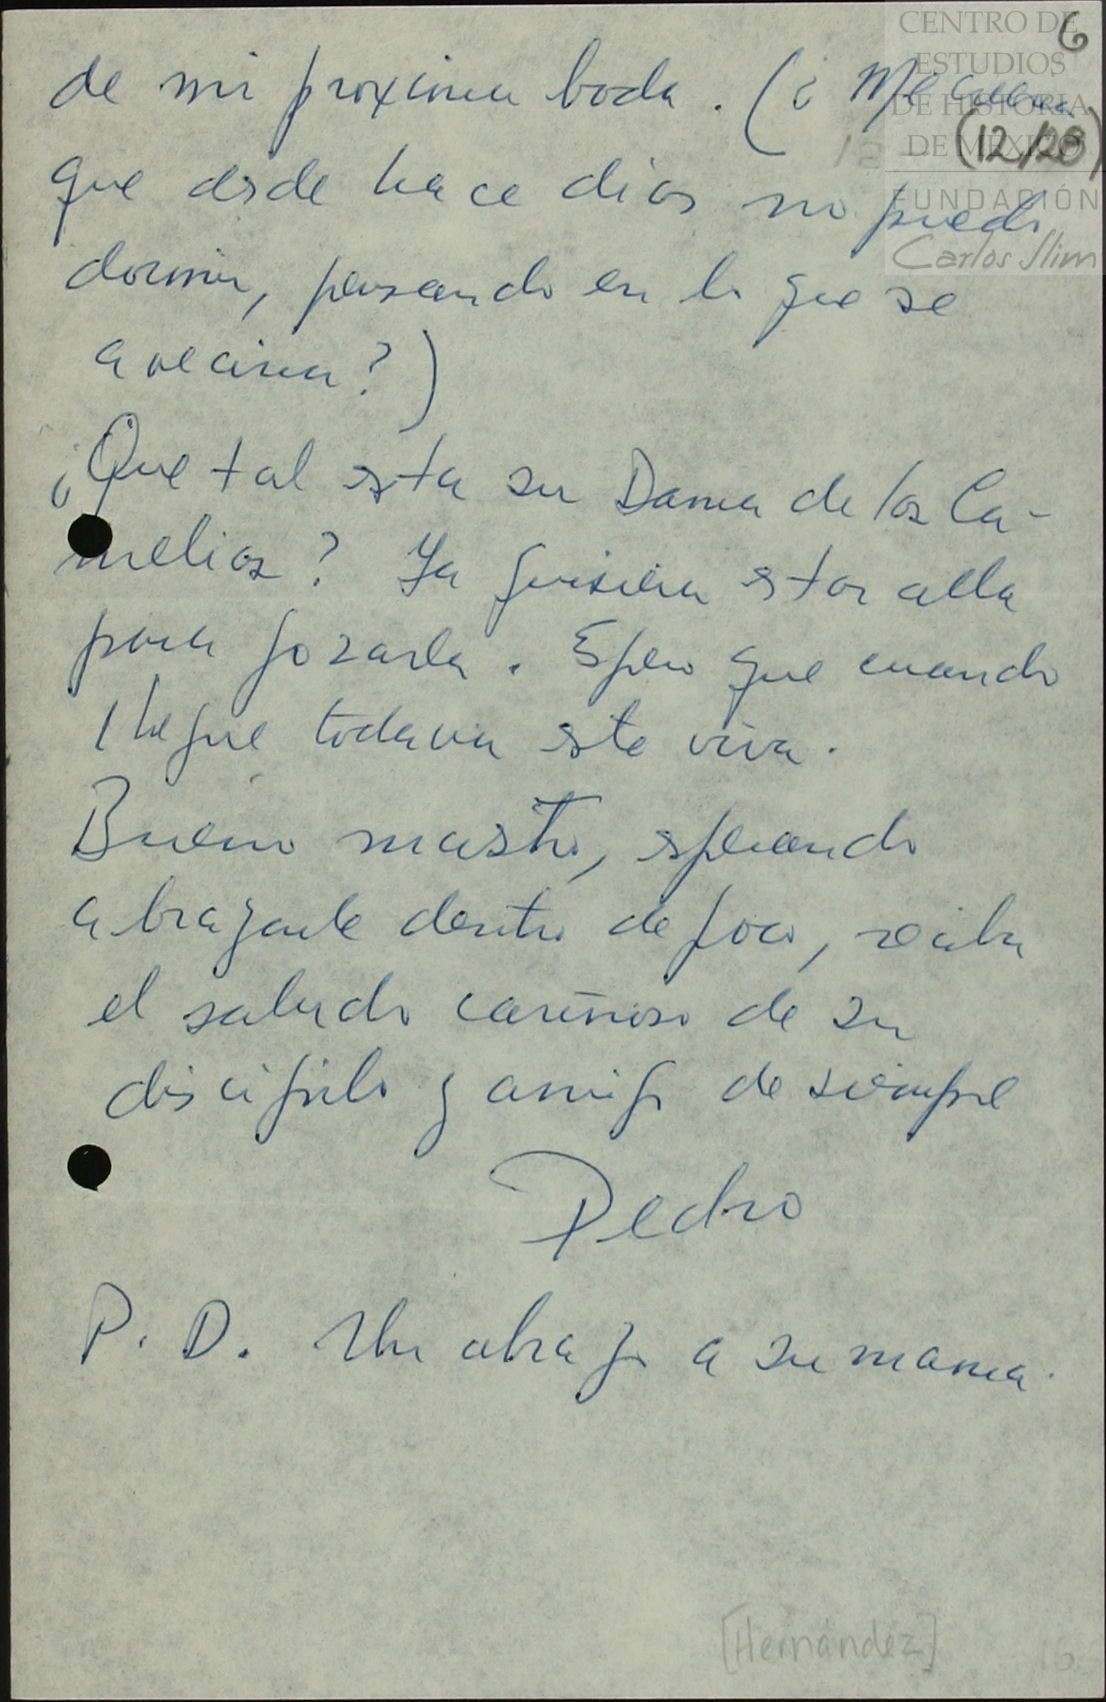 CENTRO DE
ESTUDIOS
DE HISTORIA
DE MÉXICO
FUNDACIÓN
Carlos Slim
6
(12/28)
de mi proxima boda. (¿Me creera
que desde hace dias no puedo
dormir, pensando en lo que se
avecina?)
¿Que tal esta su Dama de las Ca-
melias? Ya quisiera estar alla
para gozarla. Espero que cuando
llegue todavia este viva.
Bueno maestro, esperando
abrazarle dentro de poco, reciba
el saludo cariñoso de su
discipulo y amigo de siempre
Pedro
P. D. Un abrazo a su mama.
[Hernández]